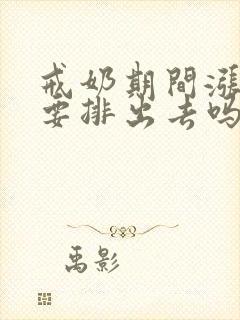 戒奶期間漲
要排出去吗
禹影